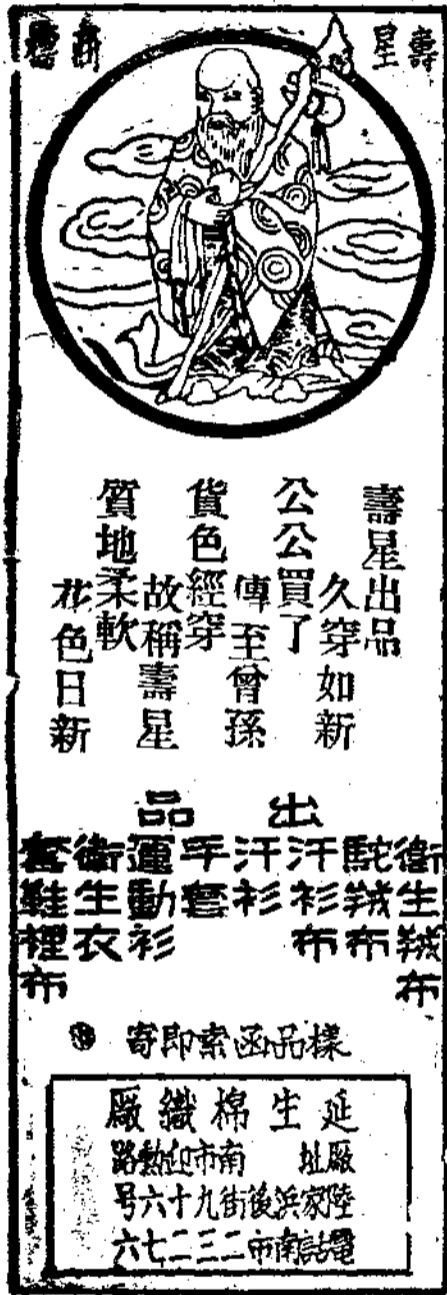 壽星
商標
壽星出品
久穿如新
公公買了
傳至曾孫
貨色經穿
故稱壽星
質地柔軟
花色日新
出品
衛生羢布
駝羢布
汗衫布
汗衫
手套
運動衫
衛生衣
套鞋裡布
樣品函索即寄
延生棉織廠
廠址 南市迎勳路
陸家浜後街九十六号
電話南市二三二七六